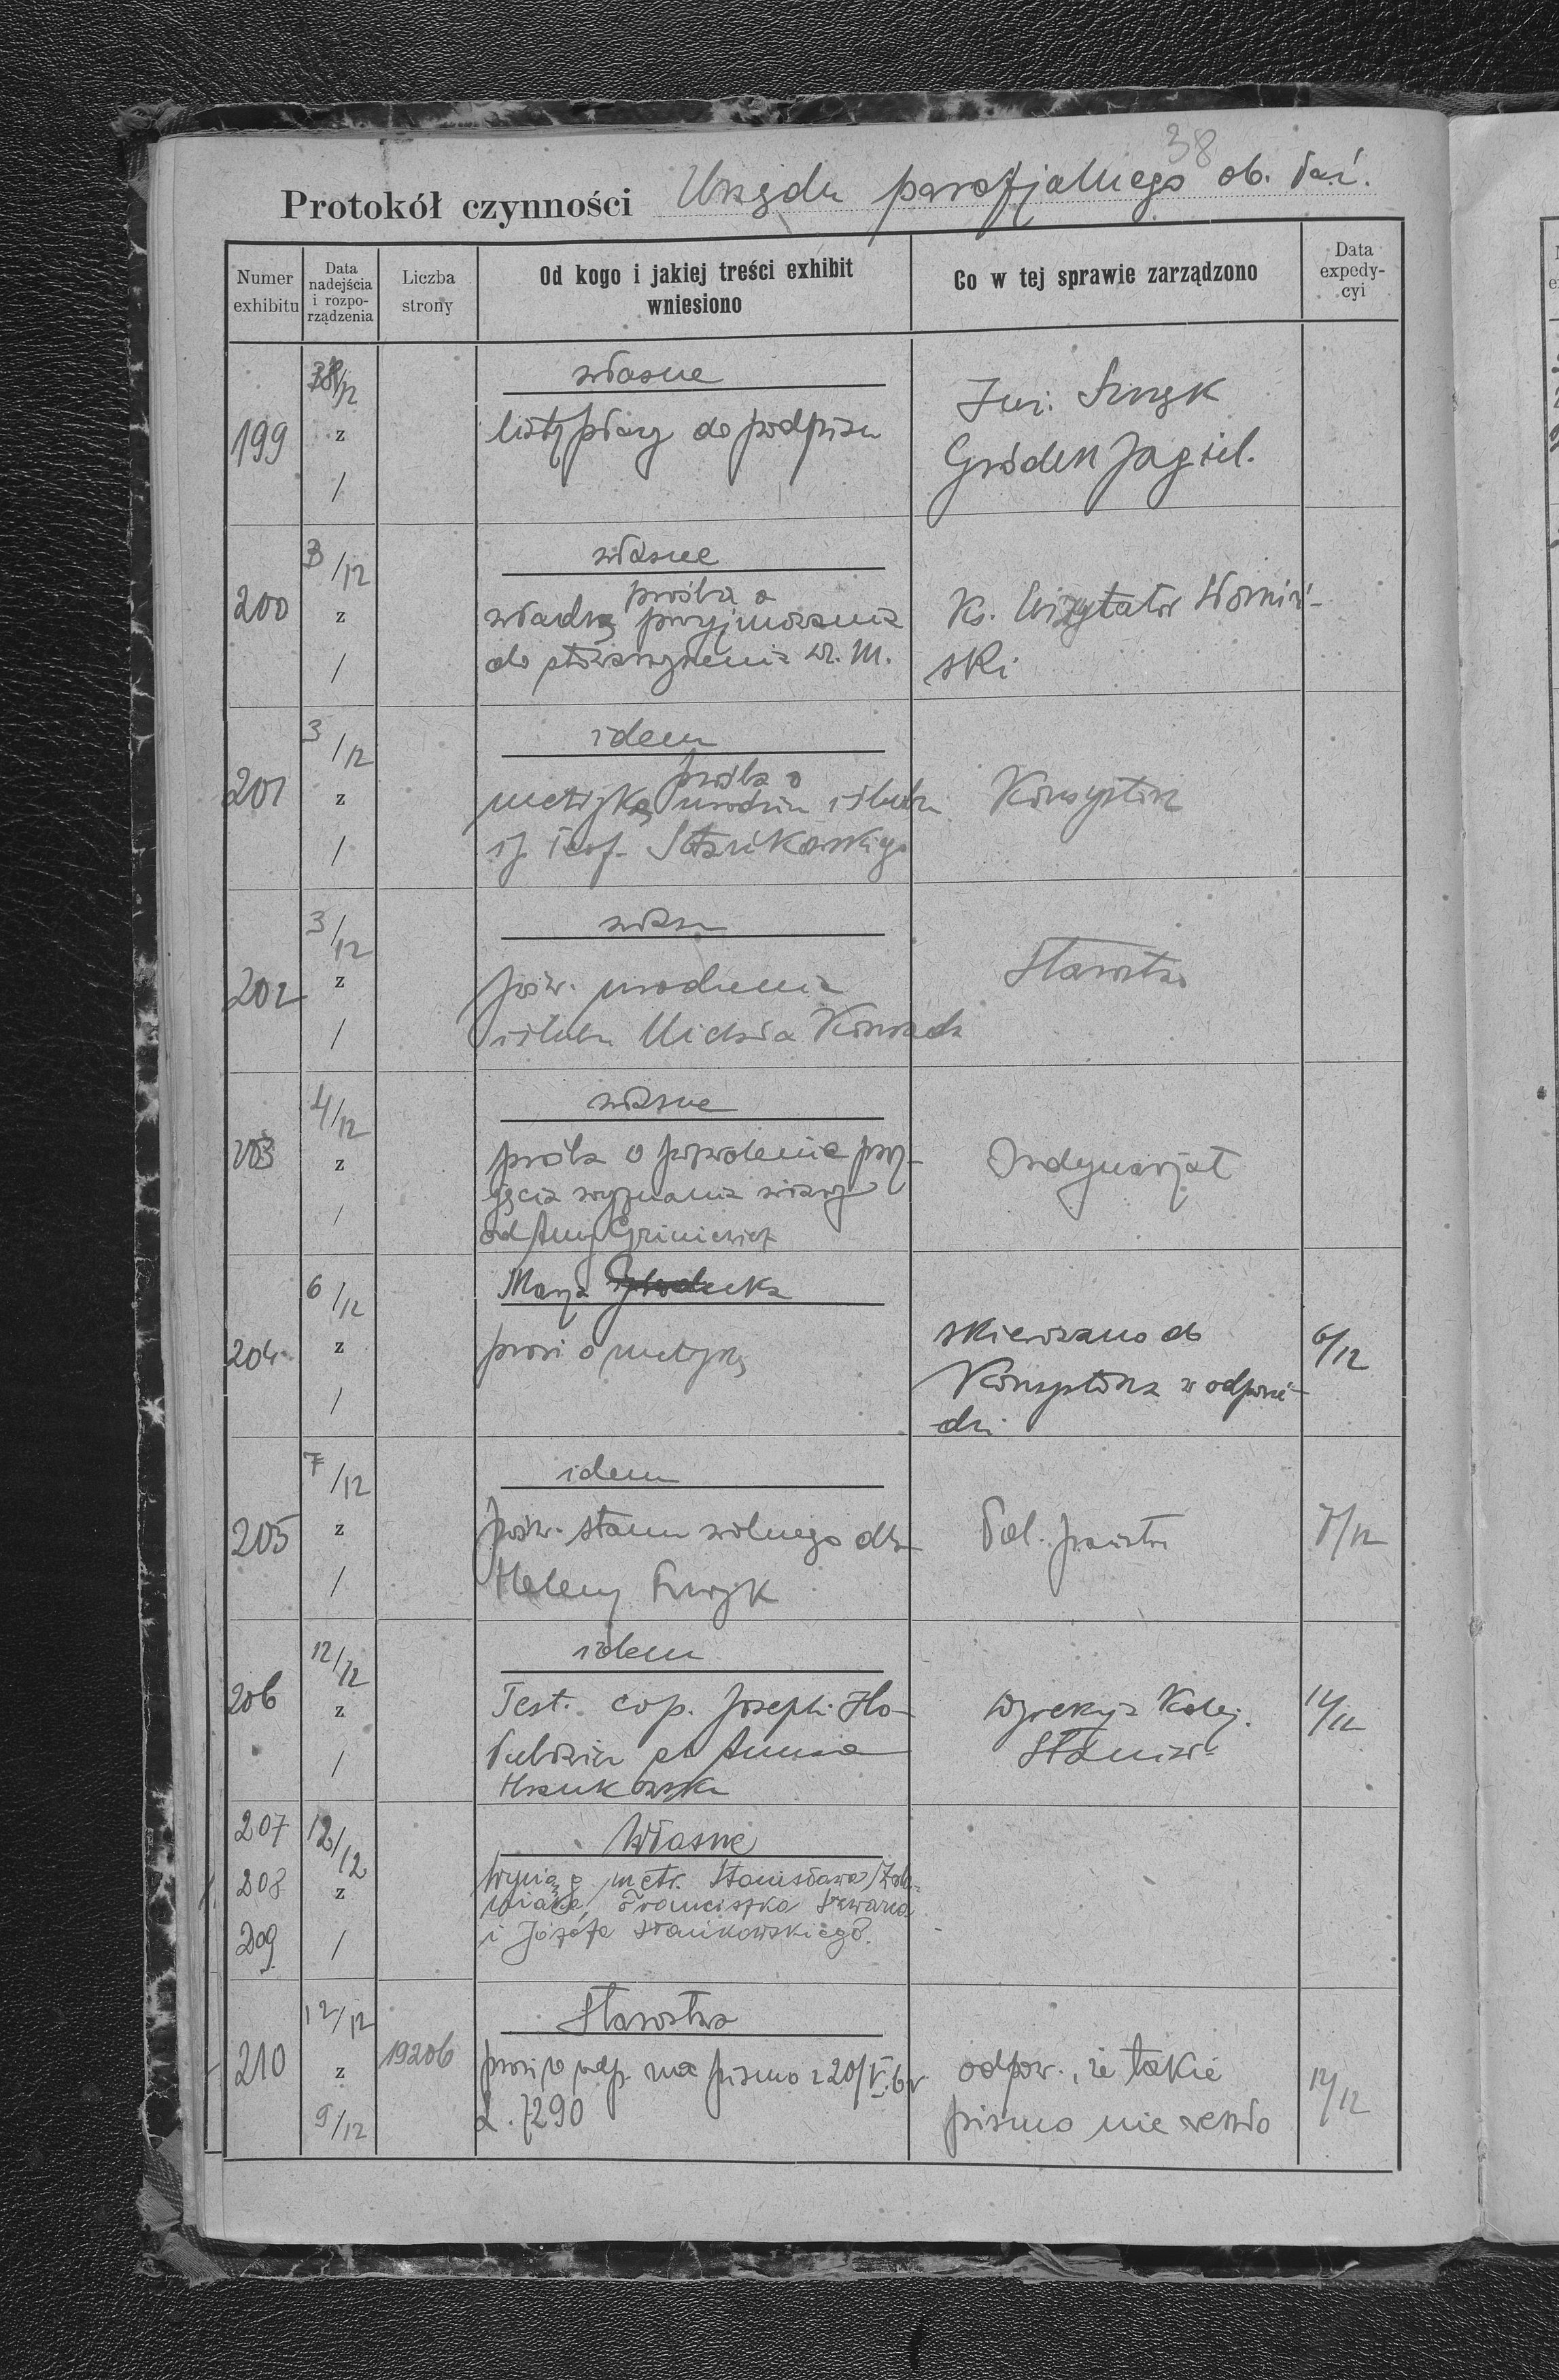 38
Protokół czynności Urzędu parafjalnego ob. łać.
Numer exhibitu
Data nadejścia i rozporządzenia
Liczba strony
Od kogo i jakiej treści exhibit wniesiono
Co w tej sprawie zarządzono
Data expedycyi
199
z
/
własne
listy płacy do podpisu
Inż.
Gródek Jagiel.
200
3/12
z
/
własne
prośba o
władzę przyjmowania
do stowarzyszenia
Ks. Wizytator
ski
201
3/12
z
/
idem
prośba o
metrykę urodzin i ślubu
Stańkowskiego
Konsystorz
202
3/12
z
/
pośw. urodzenia
i ślubu Konrada
Starostwo
203
4/12
z
/
własne
prośba o pozwolenie przy-
jęcia wyznania wiary
od Anny Griniewicz
Ordynarjat
204
6/12
z
/
Marja
prosi o metrykę
skierowano do
Konsystorza w odpowie-
dzi
6/12
205
7/12
z
/
idem
pośw. stanu wolnego dla
Heleny
7/12
206
12/12
z
/
idem
Test. cop. Joseph. Ho-
et Anna
Dyrekcja Kolej.
Stanisł.
12/12
207
208
209
12/12
z
/
Własne
Wyciąg metr. Stanisława
Franciszka
i Józefa Stańkowskiego.
210
12/12
z
9/12
19206
Starostwo
prosi o odp. na pismo z 20/V. br
L. 7290
odpow., że takie
pismo nie weszło
12/12